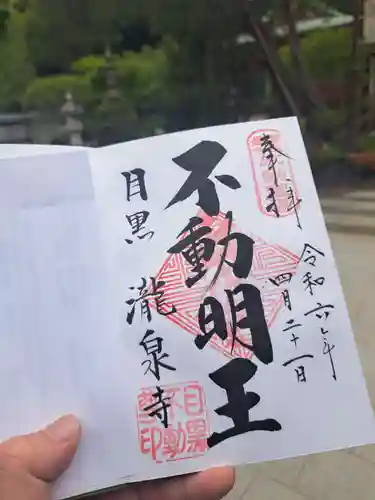 奉拝
令和六年
四月二十一日
不動明王
目黒
瀧泉寺
目黒
不動